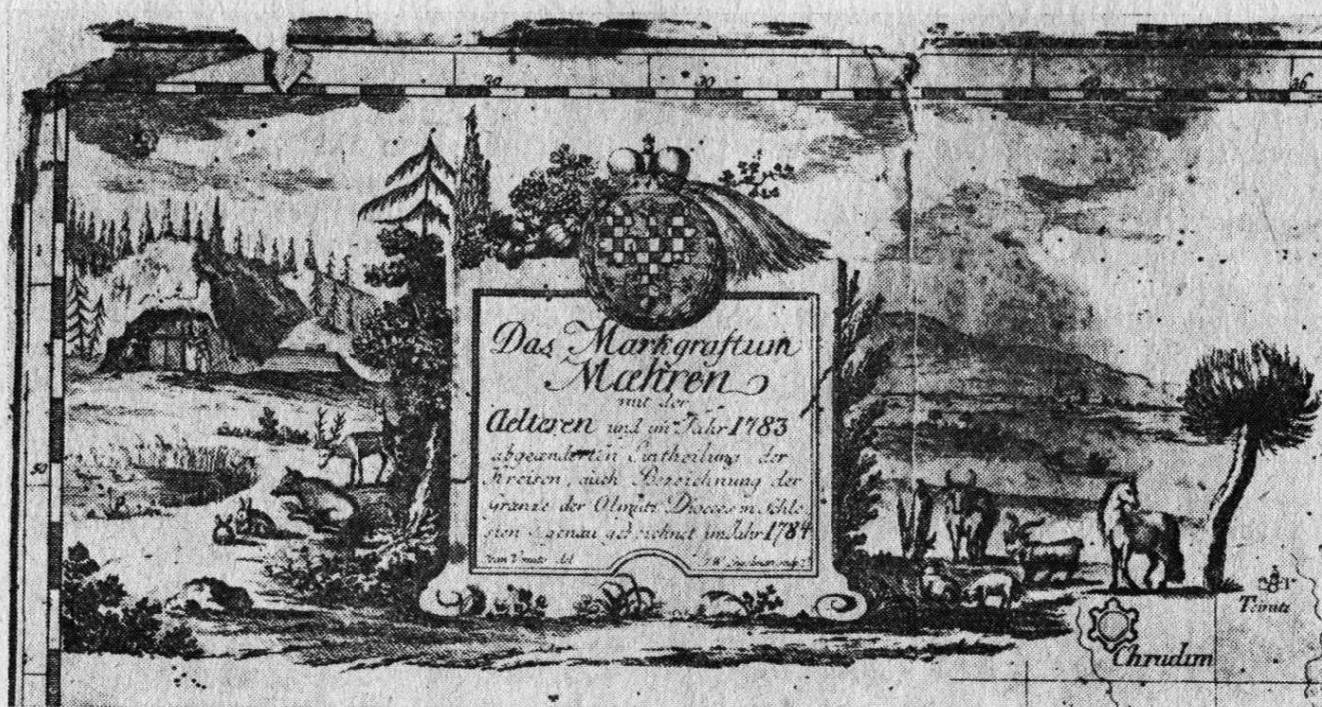 20
30
Das Markgraftum
Mæhren
mit der
Aelteren und im Jahr 1783
abgeänderten Eintheilung der
Kreisen, auch Bezeichnung der
Gränze der Olmütz Dioces in Schle
sien genau gezeichnet im Jahr 1784
del
50
Chrudim